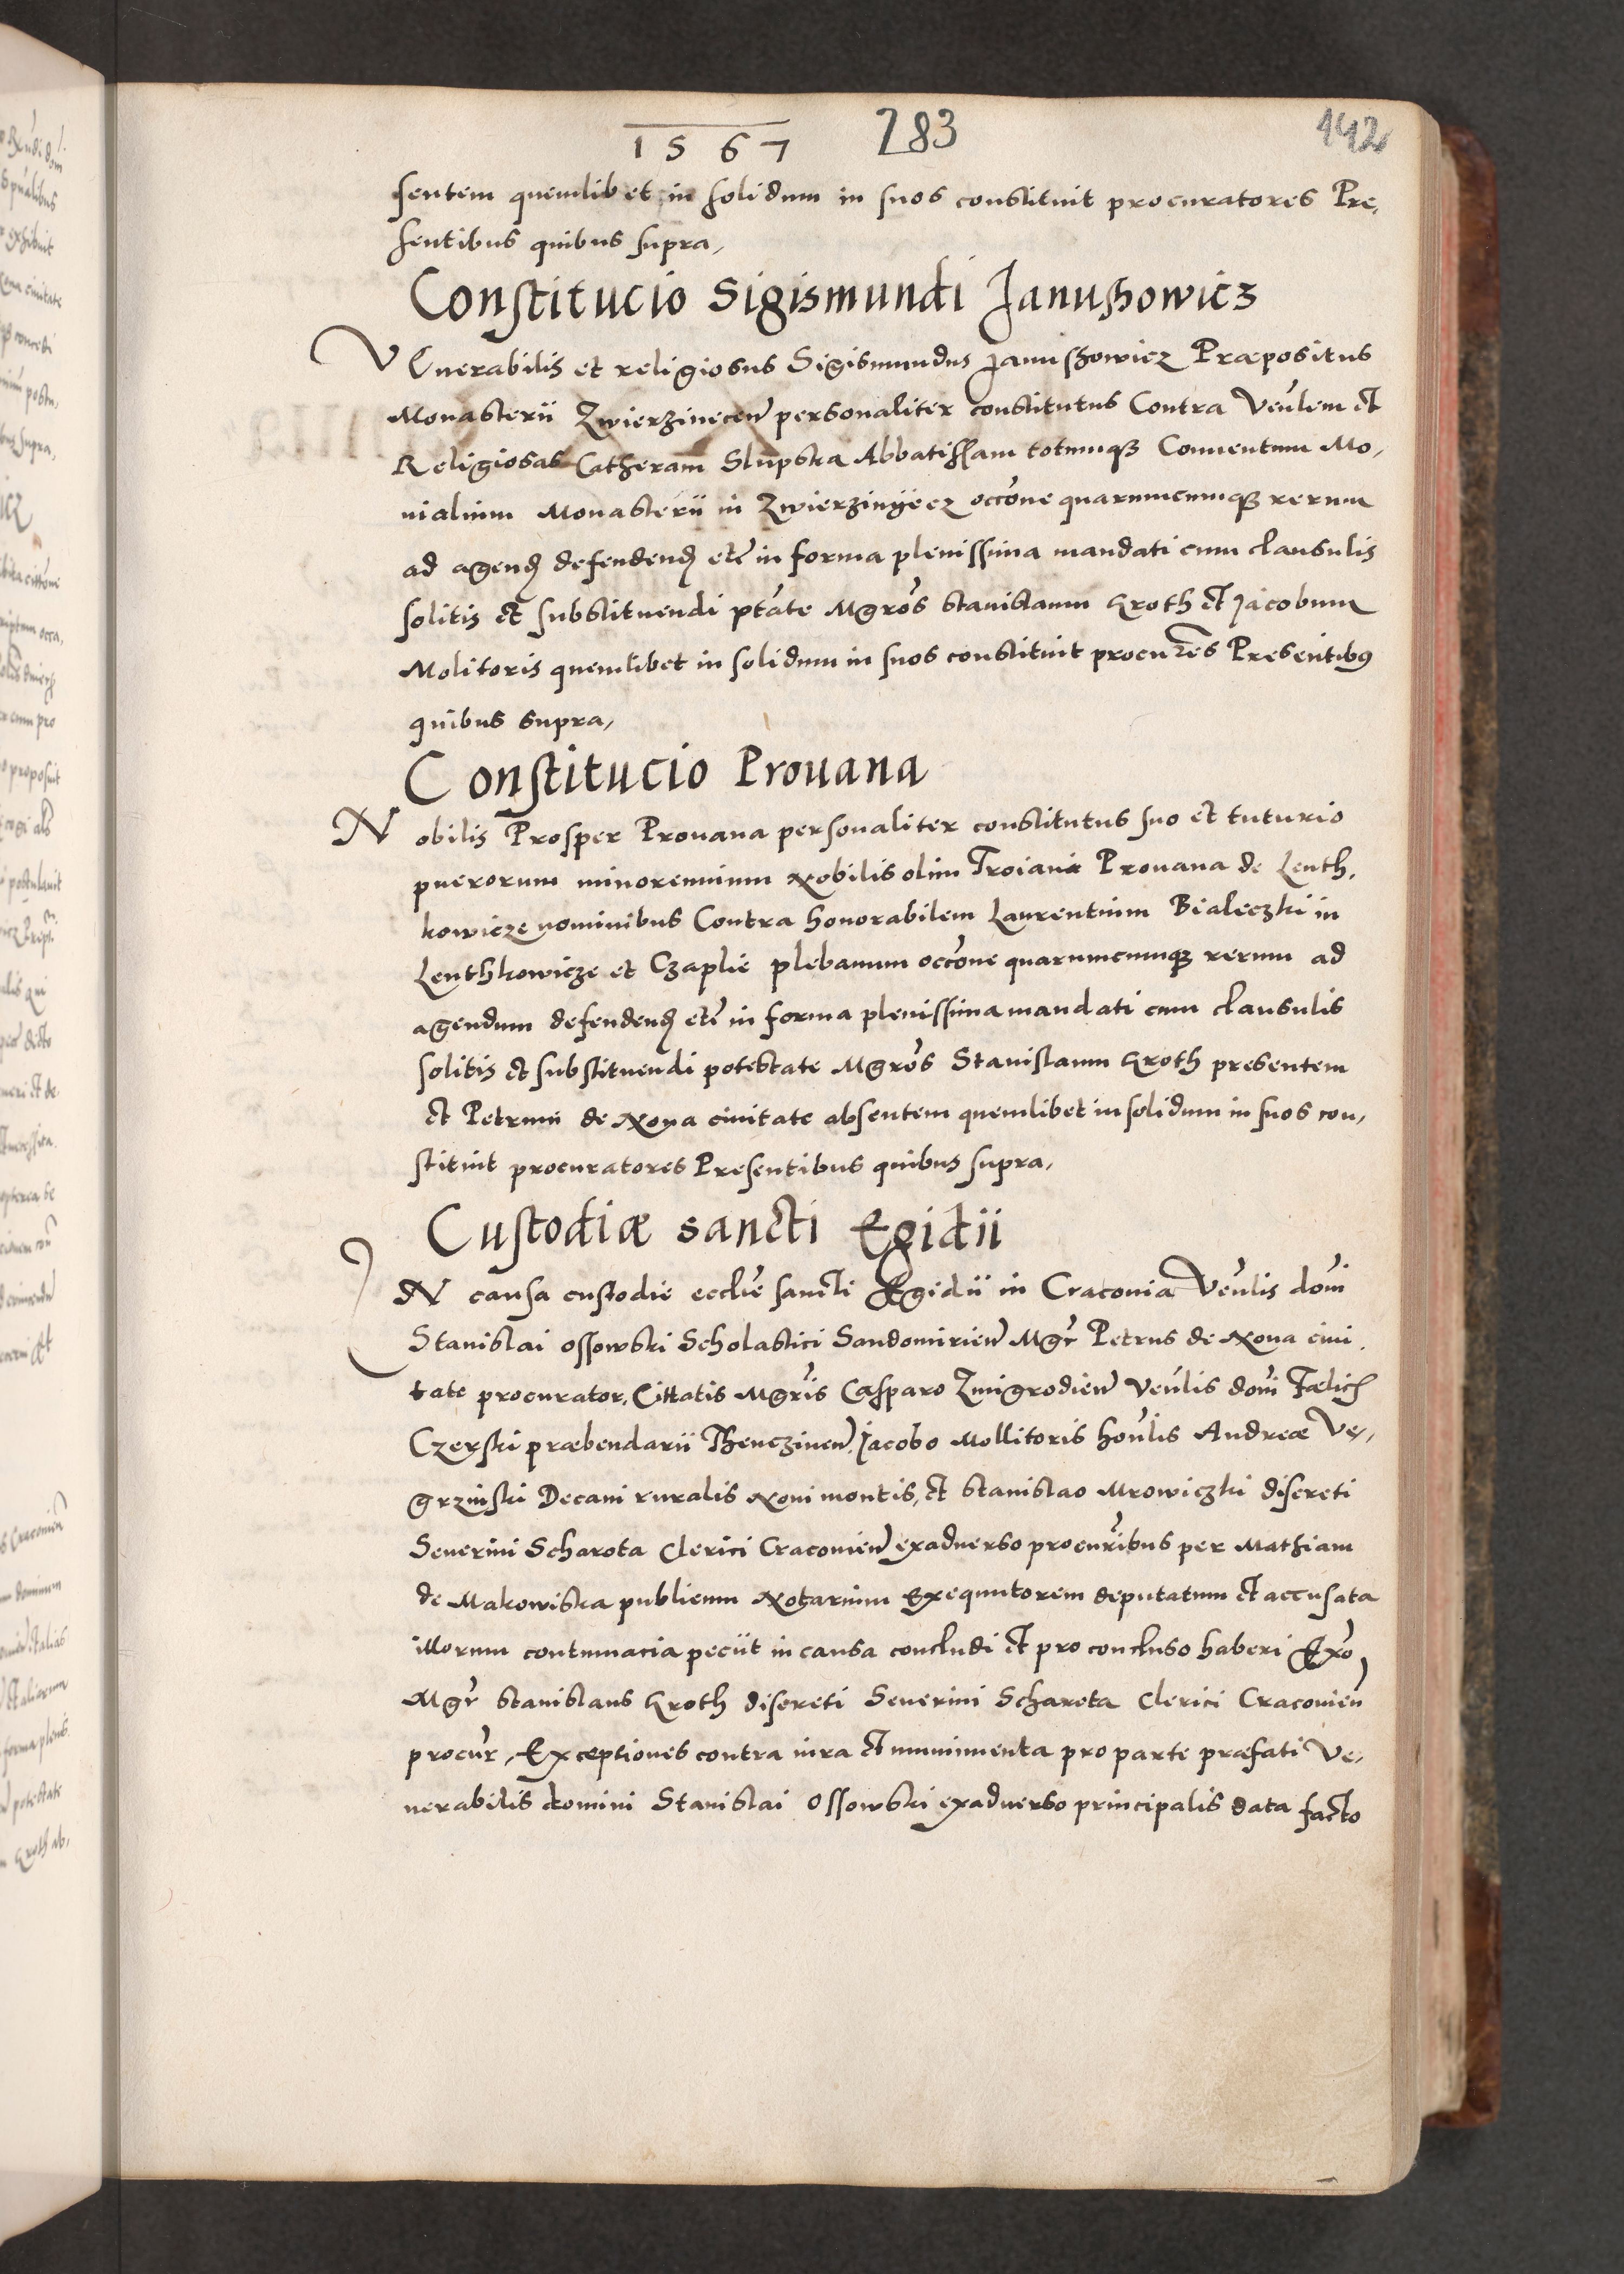 1567 283 142
sentem quemlibet in solidum in suos constituit procuratores Pre,
sentibus quibus supra,
Constitucio Sigismundi Janushowicz
VEnerabilis et religiosus Sigismundus Janushowicz Præpositus
Monasterii Zwierzinecen̄ personaliter constitutus Contra Ven̄lem et
Religiosas Catheram Slupska Abbatissam totumqꝫ Conuentum Mo,
nialium Monasterii in Zwierzinÿecz occōne quarumcumqꝫ rerum
ad agend̨ defendend̨ etc̄ in forma plenissima mandati cum clausulis
solitis et substituendi ptāte Mgrōs Stanislaum Kroth et Jacobum
Molitoris quemlibet in solidum in suos constituit procur̄es Presentibꝰ
quibus supra,
Constitucio Prouana
Nobilis Prosper Prouana personaliter constitutus suo et tuturio
puerorum minorennium Nobilis olim Troiani Prouana de Lenth,
kowicze nominibus Contra honorabilem Laurentium Bialeczki in
Lenthkowicze et Czaplie plebanum occōne quarumcumqꝫ rerum ad
agendum defendend̨ etc̄ in forma plenissima mandati cum clausulis
solitis et substituendi potestate Mgrōs Stanislaum Kroth presentem
et Petrum de Noua ciuitate absentem quemlibet in solidum in suos con,
stituit procuratores Presentibus quibus supra,
Custodiæ sancti Egidii
IN causa custodie ecclīe sancti Egidii in Cracouia Ven̄lis dom̄i
Stanislai Ossowski Scholastici Sandomirien̄ Mgr̄ Petrus de Noua ciui,
tate procurator, Cittatis Mgrīs Casparo Zmigrodien̄ Ven̄lis dom̄i Fælicꝭ
Czerski præbendarii Thenczinen̄, Jacobo Mollitoris hon̄lis Andreæ Ve,
grzinski Decani ruralis Noui montis, et Stanislao Mrowiczki discreti
Seuerini Scharota Clerici Cracouien̄ exaduerso procur̄ibus per Mathiam
de Makowiska publicum Notarium Exequutorem deputatum et accusata
illorum contumacia peciit in causa concludi et pro concluso haberi Exō
Mgr̄ Stanislaus Kroth discreti Seuerini Scharota Clerici Cracouien̄
procur̄, Exceptiones contra iura et munimenta pro parte præfati Ve,
nerabilis domini Stanislai Ossowski exaduerso principalis data facto